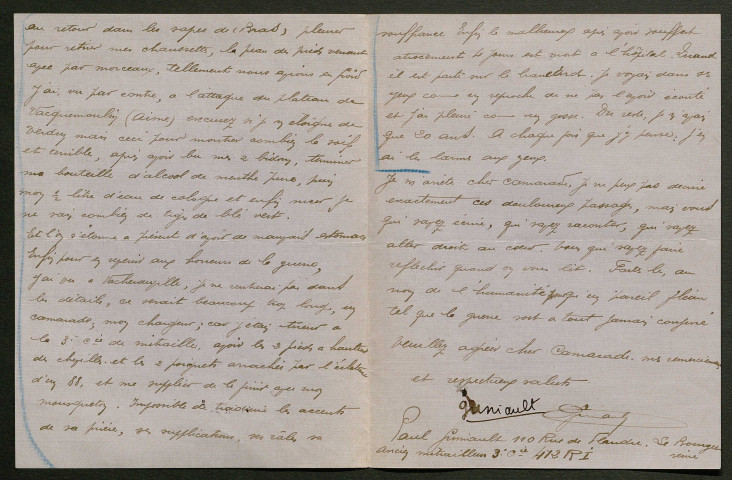 au retour dans les sapes de (Bras) pleurer
pour retirer mes chaussettes, la peau des pieds venant
avec par morceaux, tellement nous avions eu froid
J'ai vu par contre, a l'attaque du plateau de
Vacquemoulin (Aisne) excusez si je m'éloigne de
Verdun mais ceci pour montrer combien la soif
est terrible, après avoir bu mes 2 bidons, terminer
ma bouteille d'alcool de menthe pure, puis
mon ½ litre d'eau de cologne et enfin sucer je
ne sais combien de tiges de blé vert.
Et l'on s'étonne a présent d'avoir de mauvais estomacs
Enfin pour en revenir aux horreurs de la guerre,
j'ai vu a Vacherauville, je ne rentrerai pas dans
les détails, ce serait beaucoup trop long, un
camarade, mon chargeur, car j'étais tireur a
la 3e Cie de mitraille, avoir les 2 pieds a hauteur
des chevilles et les 2 poignets arrachés par l'éclatement
d'un 88, et me supplier de le finir avec mon
mousqueton. Impossible de traduire les accents
de sa prière, ses supplications, ses râles sa
souffrance Enfin le malheureux après avoir souffert
atrocement 4 jours est mort a l'hôpital. Quand
il est parti sur le brancard. je voyais dans ses
yeux comme un reproche de ne pas l'avoir écouté
et j'ai pleuré comme un gosse. Du reste, je n'avais
que 20 ans. A chaque fois que j'y pense, j'en
ai la larme aux yeux.
Je m'arrête cher Camarade, je ne peux pas décrire
exactement ces douloureux passages, mais vous
qui savez écrire, qui savez raconter, qui savez
aller droit au cœur. vous qui savez faire
réfléchir quand on vous lit. Faites le, au
nom de l'humanité pour un pareil fléau
tel que la guerre soit a tout jamais conjuré
Veuillez agréer cher Camarade. mes remerciements
et respectueux saluts
Guniault
Paul Guniault 110 Rue de Flandre. Le Bourget
Seine
Ancien mitrailleur 3e Cie 413 R I